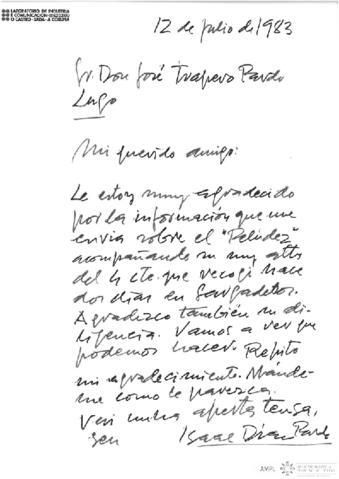 LABORATORIO DE INDUSTRIA
E COMUNICACIÓN
O CASTRO · SADA · A CORUÑA
12 de julio de 1983
Sr. Don José Trapero Pardo
Lugo
Mi querido amigo:
Le estoy muy agradecido
por la información que me
envia sobre el "Pelúdez"
acompañando su muy atta
del 4 cte. que recogí hace
dos días en Sargadelos.
Agradezco también su di-
ligencia. Vamos a ver que
podemos hacer. Repito
mi agradecimiento. Mánde-
me como le parezca.
unha aperta tensa,
seu Isaac Díaz Pardo
AMPL